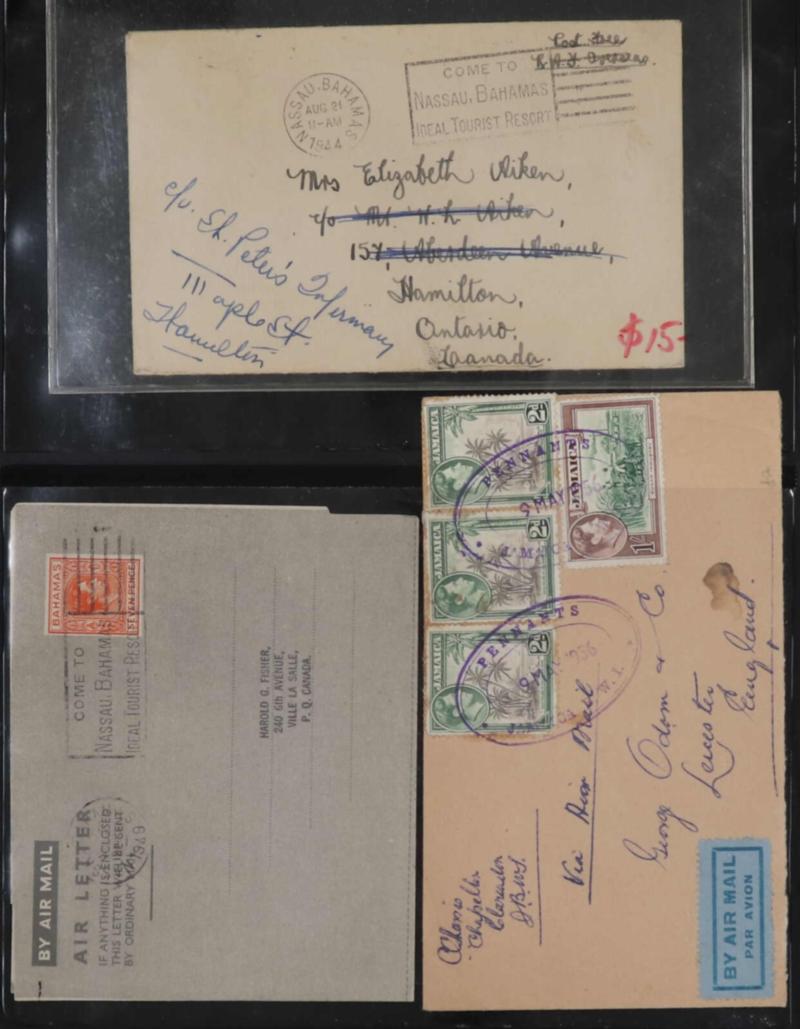 Post Free
R.A.F. Overseas.
NASSAU, BAHAMAS
AUG 21
11-AM
1944
COME TO
NASSAU, BAHAMAS
IDEAL TOURIST RESORT
Mrs Elizabeth Aiken,
c/o Mr. H. L. Aiken,
157, Aberdeen Avenue,
Hamilton,
Ontario.
Canada.
c/o. St. Peter's Infermary
Maple St.
Hamilton
$15-
BAHAMAS
SEVEN PENCE
COME TO
NASSAU, BAHAMAS
IDEAL TOURIST RESORT
1949
BY AIR MAIL
AIR LETTER
IF ANYTHING IS ENCLOSED
THIS LETTER WILL BE SENT
BY ORDINARY MAIL
HAROLD G. FISHER,
240 6th AVENUE,
VILLE LA SALLE,
P. Q. CANADA.
JAMAICA
2D
JAMAICA
2D
JAMAICA
2D
JAMAICA
1/-
PENNANTS
9 MAY 956
JAMAICA
PENNANTS
9 MAY 956
W. I.
Via Air Mail
George Odom & Co.
Leicester
England.
Chapelton
Clarendon
J.B.W.I.
BY AIR MAIL
PAR AVION